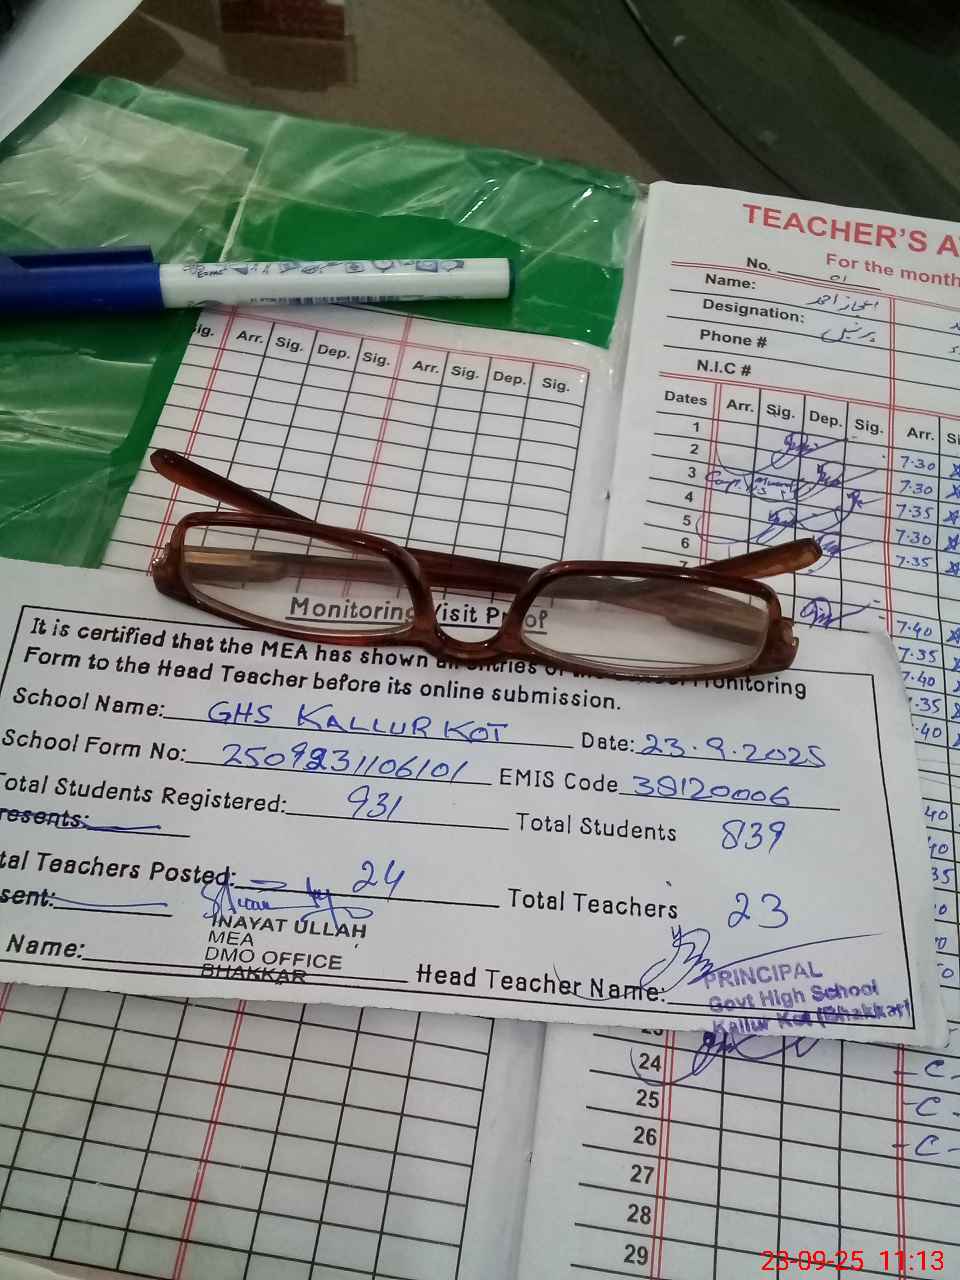 TEACHER'S A
For the month
No. 01
Name: اعجاز احمد
Designation: پرنسپل
Phone #
N.I.C #
ig. Arr. Sig. Dep. Sig. Arr. Sig. Dep. Sig.
Dates Arr. Sig. Dep. Sig. Arr. Si
1
2 7.30
3 7.30
4 7.35
5 7.30
6 7.35
7
7.40
7.35
7.40
.35
.40
Monitoring Visit Proof
It is certified that the MEA has shown all entries of the Monitoring
Form to the Head Teacher before its online submission.
School Name: GHS KALLUR KOT Date: 23.9.2025
School Form No: 2509231106101 EMIS Code 38120006
Total Students Registered: 931 Total Students 839
resents:
tal Teachers Posted: 24 Total Teachers 23
sent:
INAYAT ULLAH
MEA
DMO OFFICE
BHAKKAR
Name: Head Teacher Name:
PRINCIPAL
Govt High School
Kallur Kot (Bhakkar)
40
40
35
23
24 -C-
25 -C-
26 -C-
27
28
29
23-09-25 11:13